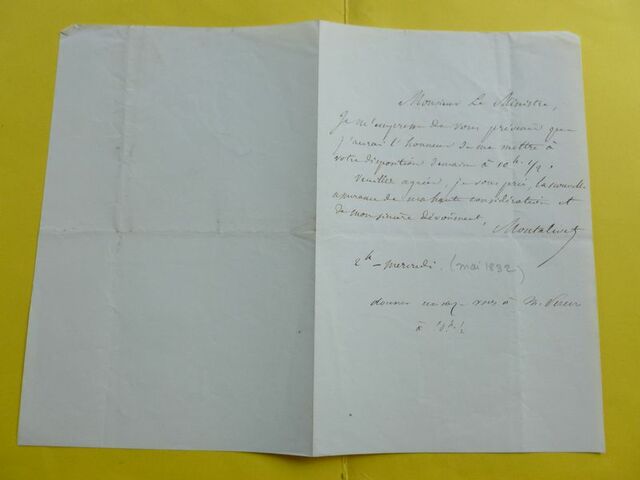 Monsieur Le Ministre,
Je m'empresse de vous prévenir que
j'aurai l'honneur de me mettre à
votre disposition demain à 10h. 1/2.
Veuillez agréer, je vous prie, la nouvelle
assurance de ma haute considération et
de mon sincère dévoûment.
Montalivet
2h - mercredi. (mai 1832)
donner rendez-vous à M.
à 10h. 1/2